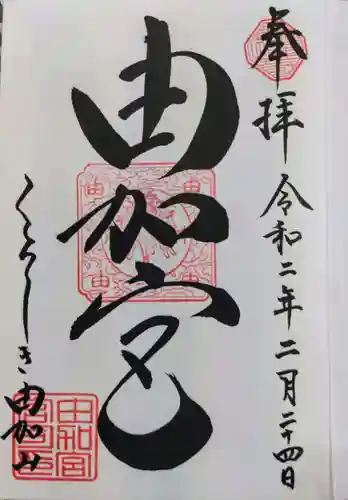 奉拝
令和二年二月二十四日
由加宮
くらしき由加山
由加宮